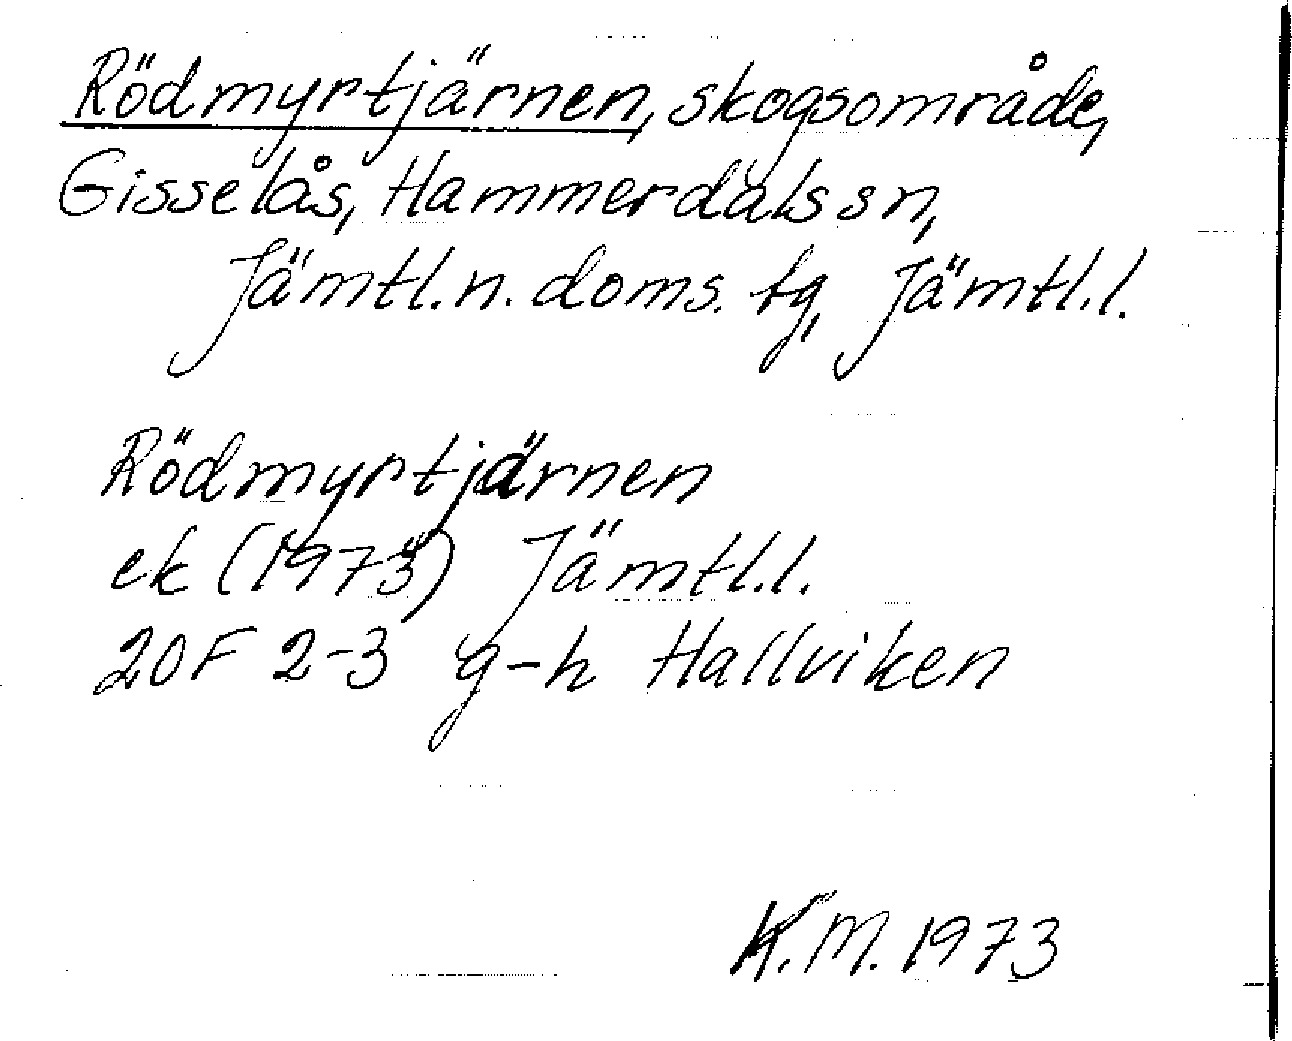 Rödmyrtjärnen, skogsområde,
Gisselås, Hammerdals sn,
Jämtl. n. doms. tg, Jämtl. l.
Rödmyrtjärnen
ek (1973) Jämtl. l.
20F 2-3 g-h Hallviken
K.M. 1973